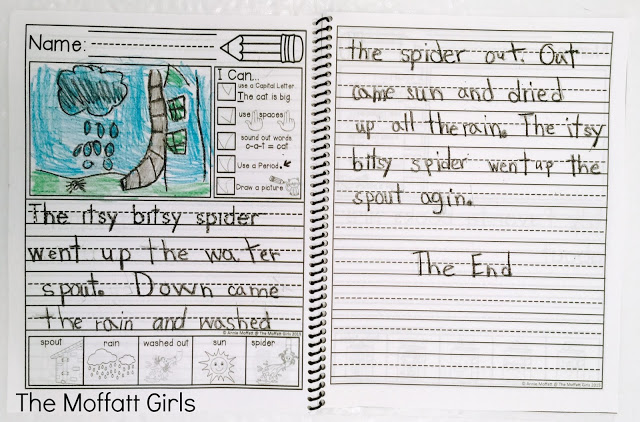 Name:
I Can...
use a Capital Letter.
The cat is big.
use spaces
sound out words
c-a-t = cat
Use a Period.
Draw a picture
The itsy bitsy spider
went up the water
spout. Down came
the rain and washed
© Annie Moffatt @ The Moffatt Girls 2013
spout rain washed out sun spider
The Moffatt Girls
the spider out. Out
came sun and dried
up all the rain. The itsy
bitsy spider went up the
spout agin.
The End
© Annie Moffatt @ The Moffatt Girls 2013